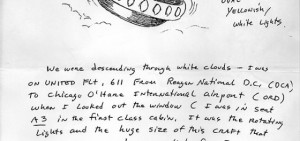 OVAL
YELLOWISH/
WHITE LIGHTS.
WE WERE DESCENDING THROUGH WHITE CLOUDS – I WAS
ON UNITED FLT, 611 FROM REAGAN NATIONAL D.C. (DCA)
TO CHICAGO O'HARE INTERNATIONAL AIRPORT (ORD)
WHEN I LOOKED OUT THE WINDOW (I WAS IN SEAT
A3 IN THE FIRST CLASS CABIN. IT WAS THE ROTATING
LIGHTS AND THE HUGE SIZE OF THIS CRAFT THAT